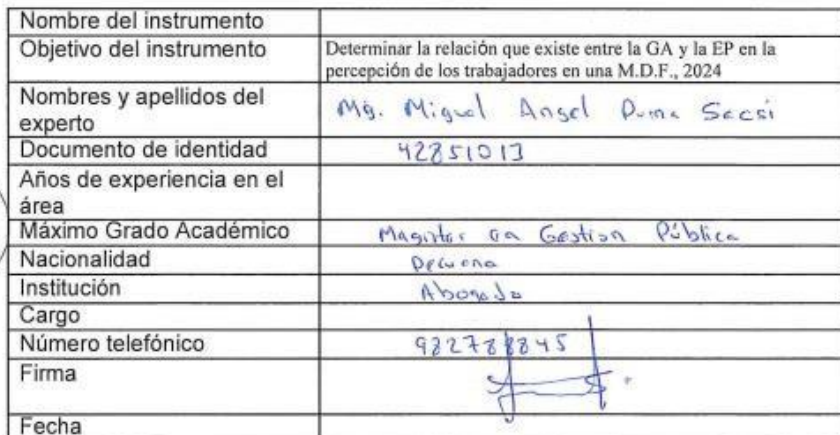 Nombre del instrumento
Objetivo del instrumento
Determinar la relación que existe entre la GA y la EP en la
percepción de los trabajadores en una M.D.F., 2024
Nombres y apellidos del
experto
Mg. Miguel Angel Puma Sacsi
Documento de identidad
42851013
Años de experiencia en el
área
Máximo Grado Académico
Magister en Gestion Pública
Nacionalidad
Peruana
Institución
Abogado
Cargo
Número telefónico
982788845
Firma
Fecha